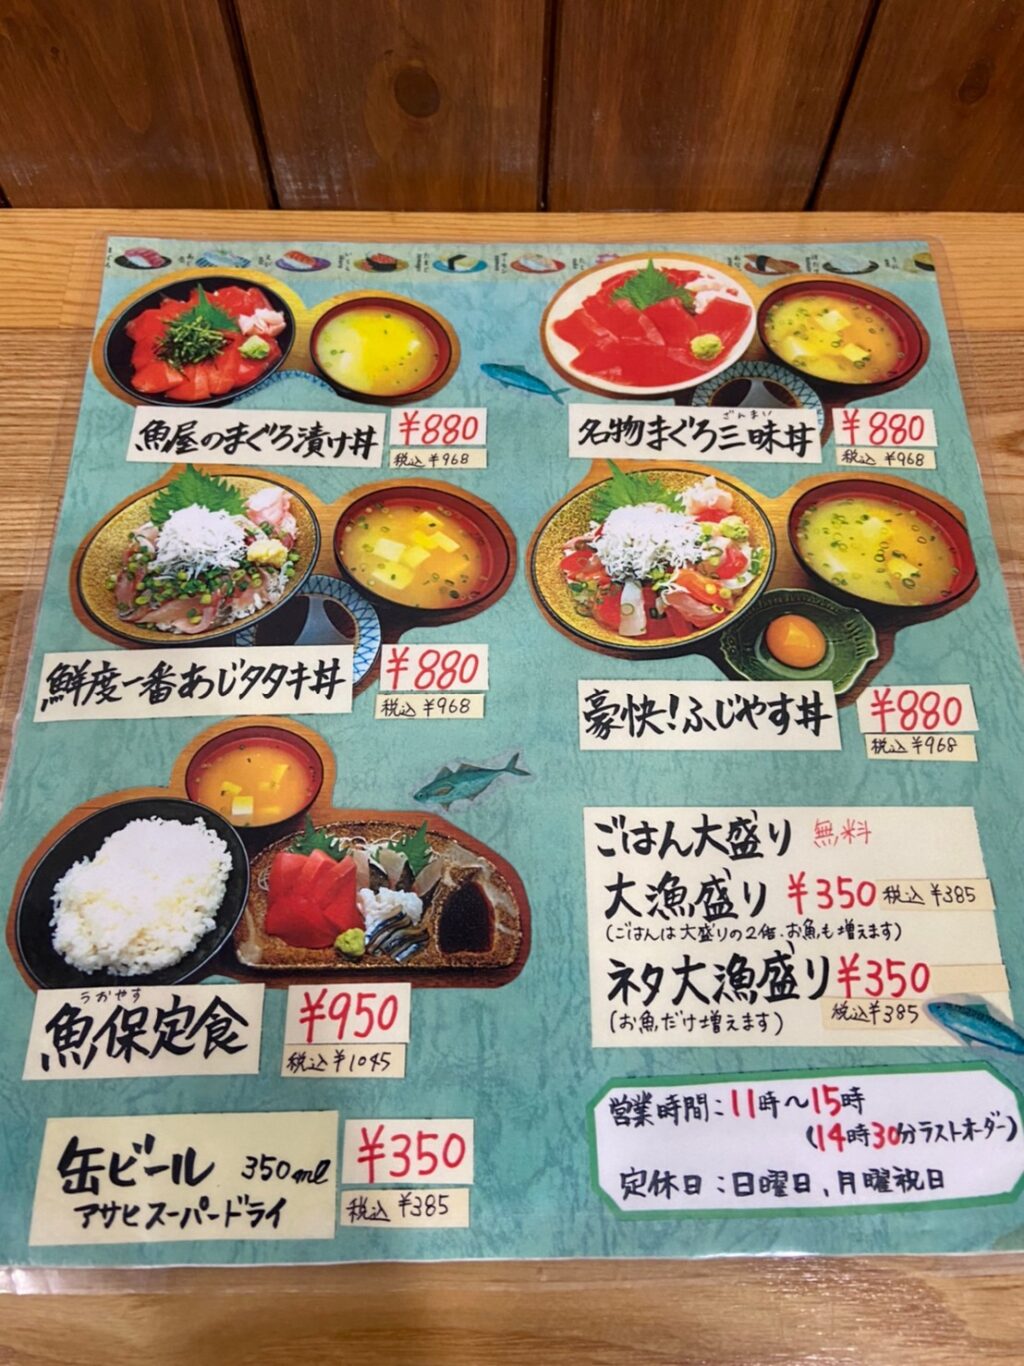 魚屋のまぐろ漬け丼
¥880
税込 ¥968
ざんまい
名物まぐろ三昧丼
¥880
税込 ¥968
鮮度一番あじタタキ丼
¥880
税込 ¥968
豪快!ふじやす丼
¥880
税込 ¥968
うおやす
魚保定食
¥950
税込 ¥1045
ごはん大盛り 無料
大漁盛り ¥350 税込 ¥385
(ごはんは大盛りの2倍、お魚も増えます)
ネタ大漁盛り ¥350
税込 ¥385
(お魚だけ増えます)
缶ビール 350ml
アサヒスーパードライ
¥350
税込 ¥385
営業時間:11時〜15時
(14時30分ラストオーダー)
定休日:日曜日、月曜祝日